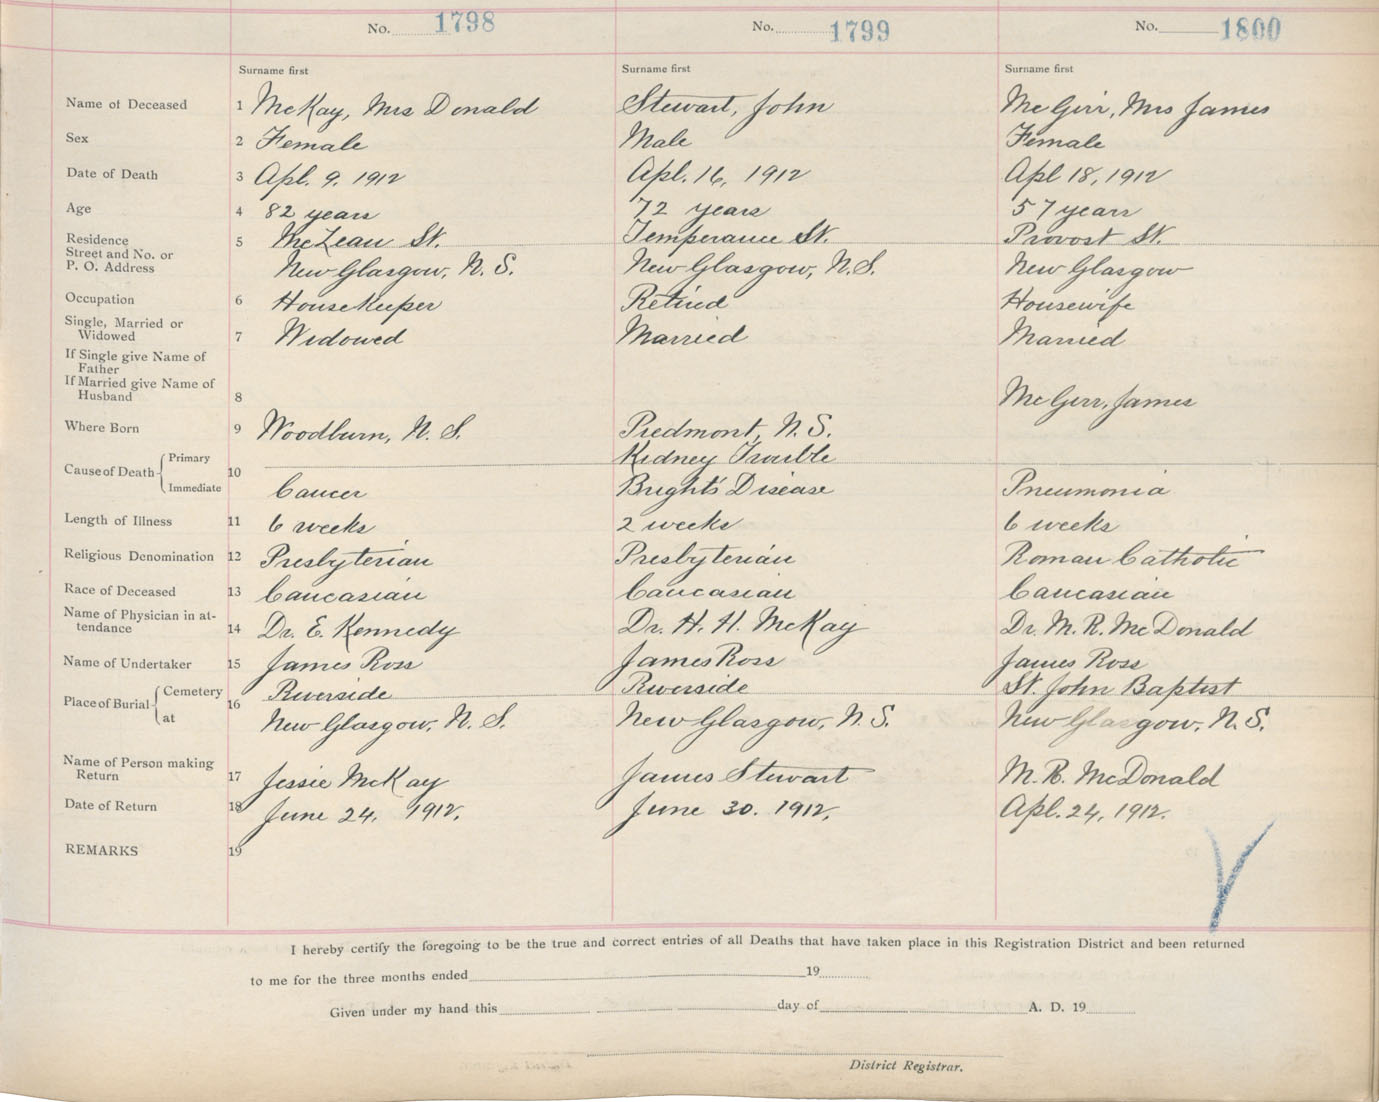 No. 1798 No. 1799 No. 1800
Surname first Surname first Surname first
Name of Deceased 1 McKay, Mrs Donald Stewart, John McGirr, Mrs James
Sex 2 Female Male Female
Date of Death 3 Apl. 9. 1912 Apl. 16, 1912 Apl 18, 1912
Age 4 82 years 72 years 57 years
Residence 5 McLean St. Temperance St. Provost St.
Street and No. or
P. O. Address New Glasgow, N. S. New Glasgow, N.S. New Glasgow
Occupation 6 Housekeeper Retired Housewife
Single, Married or
Widowed 7 Widowed Married Married
If Single give Name of
Father
If Married give Name of
Husband 8 McGirr, James
Where Born 9 Woodburn, N. S. Piedmont, N. S.
Primary Kidney Trouble
Cause of Death 10
Immediate Cancer Bright's Disease Pneumonia
Length of Illness 11 6 weeks 2 weeks 6 weeks
Religious Denomination 12 Presbyterian Presbyterian Roman Catholic
Race of Deceased 13 Caucasian Caucasian Caucasian
Name of Physician in at-
tendance 14 Dr. E. Kennedy Dr. H. H. McKay Dr. M. R. McDonald
Name of Undertaker 15 James Ross James Ross James Ross
Cemetery Riverside Riverside St. John Baptist
Place of Burial 16
at New Glasgow, N. S. New Glasgow, N. S. New Glasgow, N. S.
Name of Person making
Return 17 Jessie McKay James Stewart M. R. McDonald
Date of Return 18 June 24. 1912. June 30. 1912. Apl. 24, 1912.
REMARKS 19
I hereby certify the foregoing to be the true and correct entries of all Deaths that have taken place in this Registration District and been returned
to me for the three months ended 19
Given under my hand this day of A. D. 19
District Registrar.